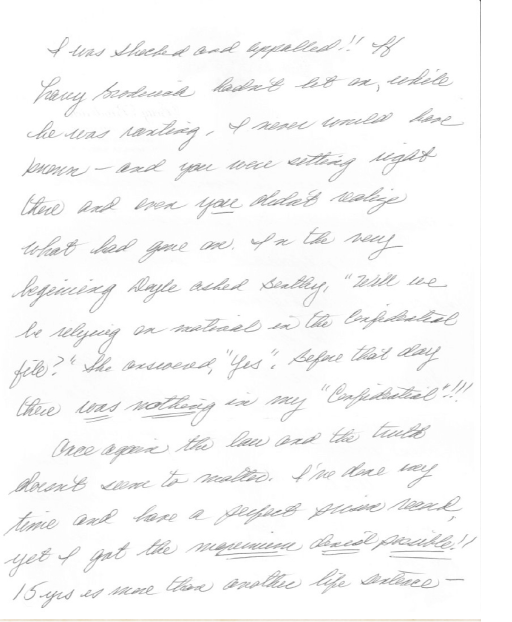 I was shocked and appalled!! If
Larry Broderick hadn't let on, while
he was ranting, I never would have
known – and you were sitting right
there and even you didn't realize
what had gone on. In the very
beginning Doyle asked Scully, "Will we
be relying on material in the Confidential
file?" She answered, "Yes". Before that day
there was nothing in my "Confidential"!!!
Once again the law and the truth
doesn't seem to matter. I've done my
time and have a perfect prison record,
yet I got the maximum denial possible!!
15 yrs is more than another life sentence –